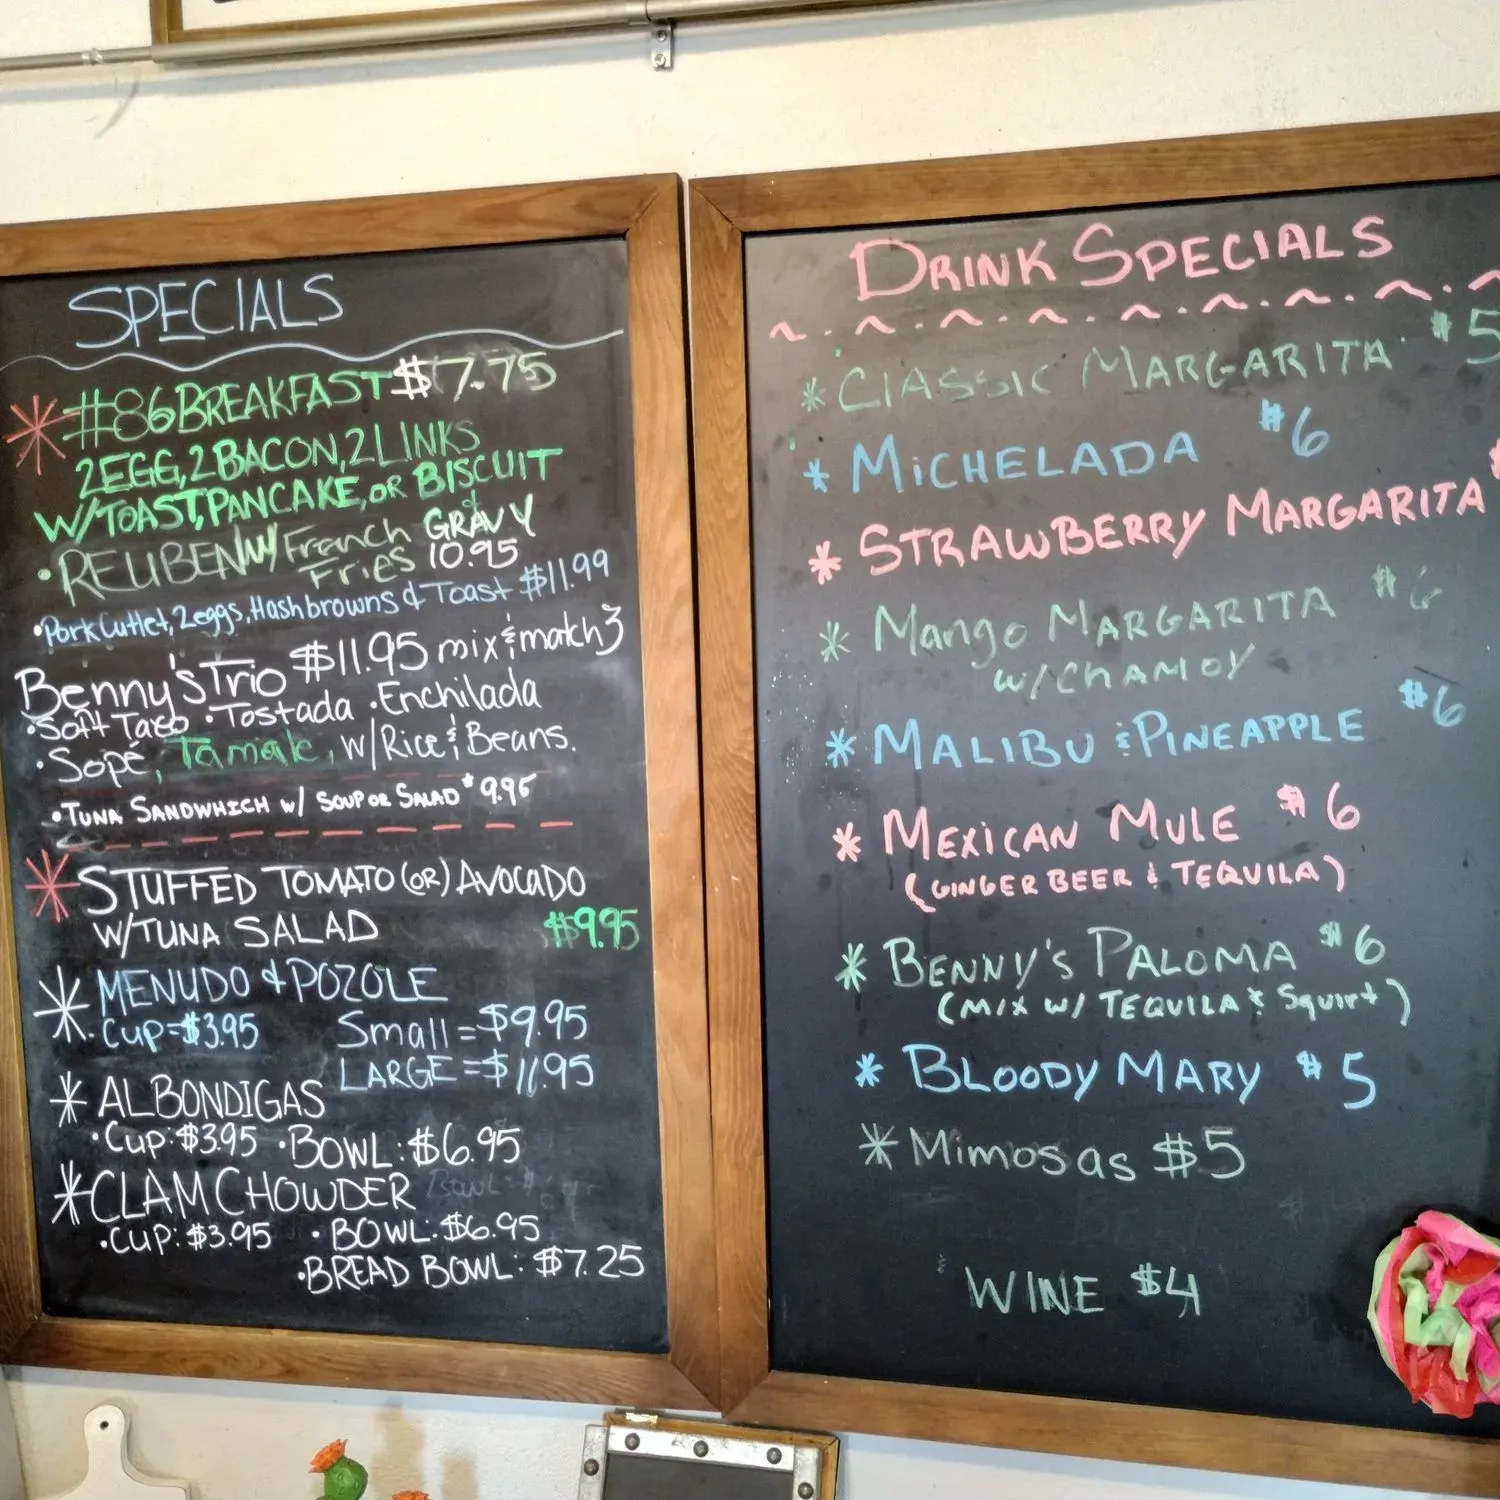 SPECIALS
#86 BREAKFAST $7.75
2EGG, 2BACON, 2LINKS
W/TOAST, PANCAKE, OR BISCUIT
& GRAVY
• REUBEN W/ Franch Fries 10.95
• Pork Cutlet, 2eggs, Hashbrowns & Toast $11.99
Benny's Trio $11.95 mix & match 3
• Soft Taco • Tostada • Enchilada
• Sopé, Tamale, w/Rice & Beans.
• TUNA SANDWHICH w/ SOUP OR SALAD $9.95
STUFFED TOMATO (OR) AVOCADO
W/TUNA SALAD $9.95
MENUDO & POZOLE
• Cup = $3.95 Small = $9.95
LARGE = $11.95
ALBONDIGAS
• Cup: $3.95 • BOWL: $6.95
CLAM CHOWDER
• CUP: $3.95 • BOWL: $6.95
• BREAD BOWL: $7.25
DRINK SPECIALS
* CLASSIC MARGARITA $5
* MICHELADA $6
* STRAWBERRY MARGARITA
* Mango MARGARITA $6
w/CHAMOY
* MALIBU & PINEAPPLE $6
* MEXICAN MULE $6
(GINGER BEER & TEQUILA)
* BENNY'S PALOMA $6
(MIX W/ TEQUILA & Squirt)
* BLOODY MARY $5
* Mimosas $5
WINE $4